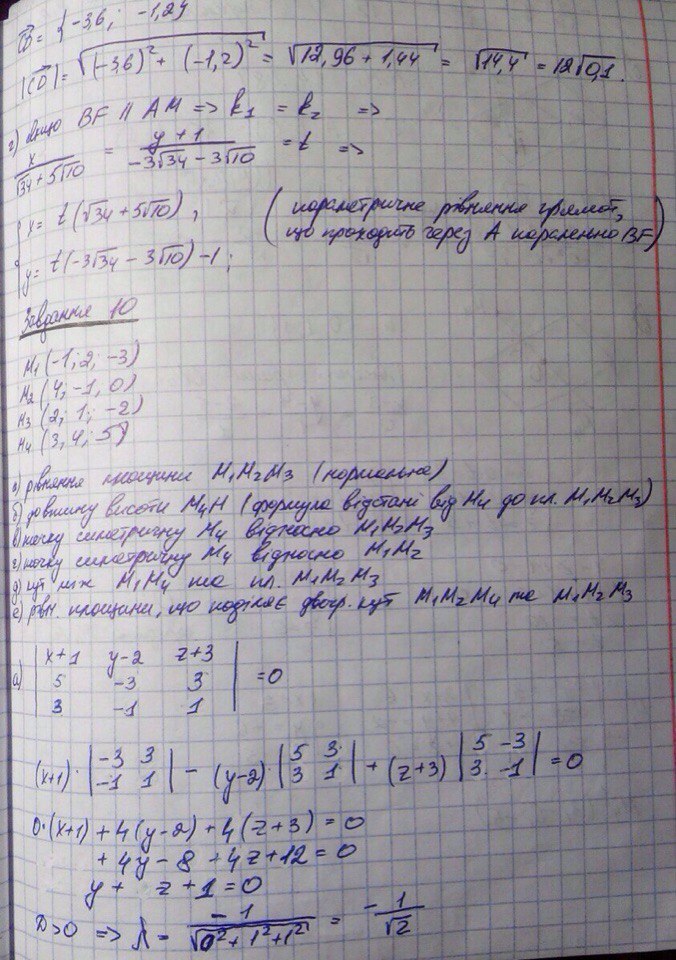 CD = { -3,6 ; -1,2 }
|CD| = √((-3,6)² + (-1,2)²) = √(12,96 + 1,44) = √14,4 = 12√0,1.
г) Якщо BF || AM => k₁ = k₂ =>
x / (√34 + 5√10) = (y + 1) / (-3√34 - 3√10) = t =>
{ x = t(√34 + 5√10) ,
y = t(-3√34 - 3√10) - 1 ;
( параметричне рівняння прямої,
що проходить через А паралельно BF )
Завдання 10
M₁ (-1; 2; -3)
M₂ (4; -1, 0)
M₃ (2; 1; -2)
M₄ (3, 4; -5)
а) рівняння площини M₁M₂M₃ (нормальне)
б) довжину висоти M₄H (формула відстані від M₄ до пл. M₁M₂M₃)
в) точку симетричну M₄ відносно M₁M₂M₃
г) точку симетричну M₄ відносно M₁M₂
д) кут між M₁M₄ та пл. M₁M₂M₃
е) рівн. площини, що поділяє двогр. кут M₁M₂M₄ та M₁M₂M₃
а) | x+1 y-2 z+3 |
| 5 -3 3 | = 0
| 3 -1 1 |
(x+1) · | -3 3 | - (y-2) · | 5 3 | + (z+3) | 5 -3 | = 0
| -1 1 | | 3 1 | | 3 -1 |
0·(x+1) + 4(y-2) + 4(z+3) = 0
+ 4y - 8 + 4z + 12 = 0
y + z + 1 = 0
D>0 => λ = -1 / √(0² + 1² + 1²) = - 1/√2